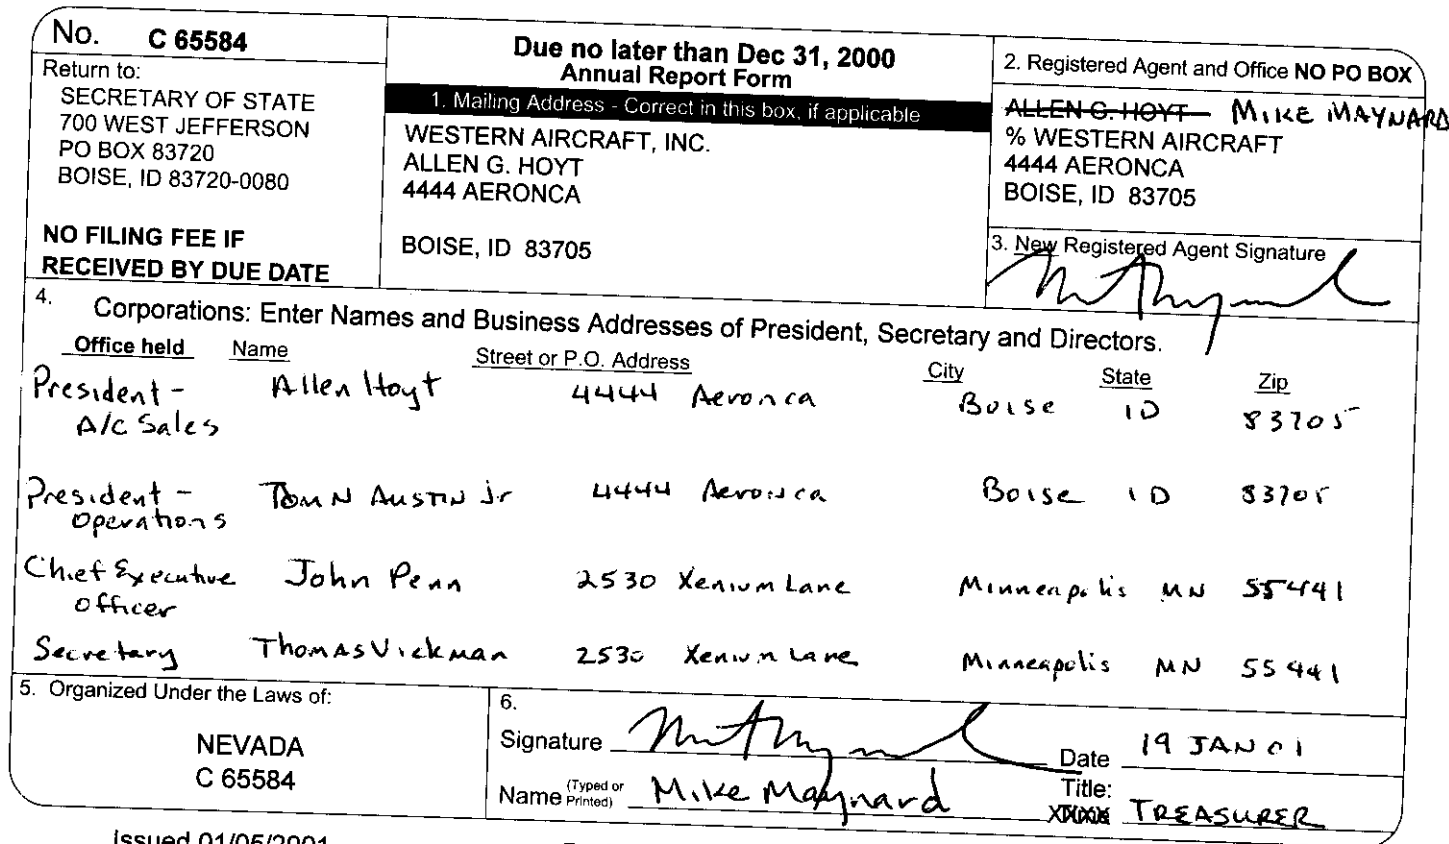 No. C 65584
Return to:
SECRETARY OF STATE
700 WEST JEFFERSON
PO BOX 83720
BOISE, ID 83720-0080
NO FILING FEE IF
RECEIVED BY DUE DATE
Due no later than Dec 31, 2000
Annual Report Form
1. Mailing Address - Correct in this box, if applicable
WESTERN AIRCRAFT, INC.
ALLEN G. HOYT
4444 AERONCA
BOISE, ID 83705
2. Registered Agent and Office NO PO BOX
ALLEN G. HOYT MIKE MAYNARD
% WESTERN AIRCRAFT
4444 AERONCA
BOISE, ID 83705
3. New Registered Agent Signature
4. Corporations: Enter Names and Business Addresses of President, Secretary and Directors.
Office held Name Street or P.O. Address City State Zip
President - Allen Hoyt 4444 Aeronca Boise ID 83705
A/C Sales
President - Tom N Austin Jr 4444 Aeronca Boise ID 83705
Operations
Chief Executive John Penn 2530 Xenium Lane Minneapolis MN 55441
Officer
Secretary Thomas Vickman 2530 Xenium Lane Minneapolis MN 55441
5. Organized Under the Laws of:
NEVADA
C 65584
6.
Signature Date 19 JAN 01
Name (Typed or Printed) Mike Maynard Title: TREASURER
Issued 01/05/2001